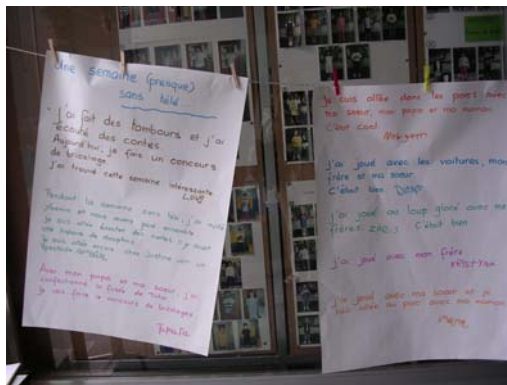 Une semaine (presque)
sans télé
J'ai fait des tambours et j'ai
écouté des contes.
Aujourd'hui, je fais un concours
de bricolage.
J'ai trouvé cette semaine intéressante
Pendant la semaine sans télé, j'ai invité
et nous avons joué ensemble
je suis allée écouter des contes
une histoire de
je suis allée encore chez Justine voir un
spectacle
Avec mon papa et ma soeur, j'ai
confectionné la
je vais faire le concours de bricolages
Je suis allée dans les parcs avec
ma soeur, mon papa et ma maman.
C'était cool
j'ai joué avec les voitures, mon
frère et ma soeur.
C'était bien
j'ai joué au loup glacé avec mes
frères C'était bien
j'ai joué avec mon frère.
j'ai joué avec ma soeur et je
suis allée au parc avec ma maman